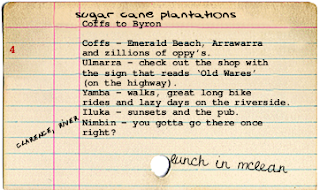 sugar cane plantations
Coffs to Byron
4
Coffs - Emerald Beach, Arrawarra
and zillions of oppy's.
Ulmarra - check out the shop with
the sign that reads 'Old Wares'
(on the highway).
Yamba - walks, great long bike
rides and lazy days on the riverside.
Iluka - sunsets and the pub.
Nimbin - you gotta go there once
right?
CLARENCE, RIVER
lunch in mclean